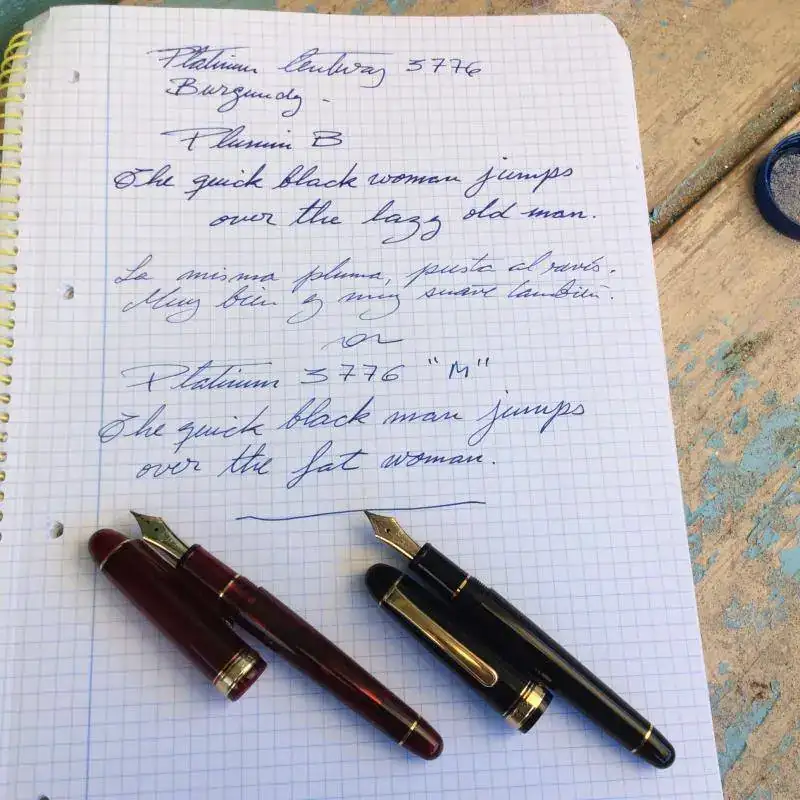 Platinum Century 3776
Burgundy -
Plumin B
The quick black woman jumps
over the lazy old man.
La misma pluma, puesta al revés.
Muy bien y muy suave también.
Platinum 3776 "M"
The quick black man jumps
over the fat woman.